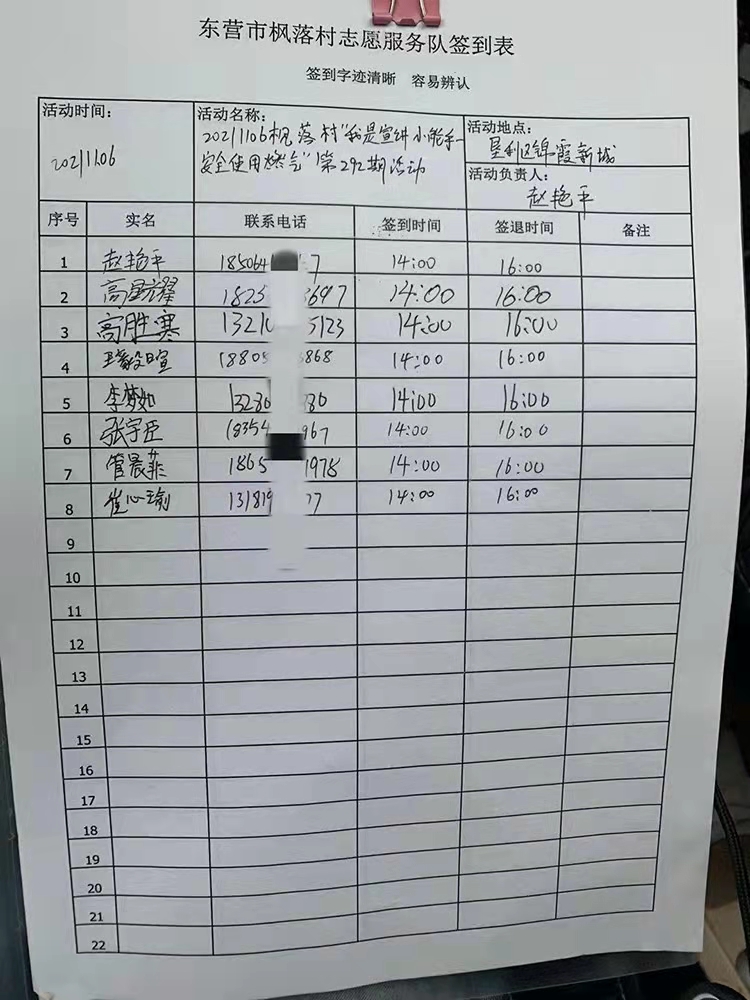 东营市枫落村志愿服务队签到表
签到字迹清晰 容易辨认
活动时间: 20211106
活动名称: 20211106枫落村"我是宣讲小能手—
安全使用燃气"第292期活动
活动地点: 垦利区锦霞新城
活动负责人: 赵艳平
序号 实名 联系电话 签到时间 签退时间 备注
1 赵艳平 185064 7 14:00 16:00
2 高星耀 1825 3697 14:00 16:00
3 高胜寒 13210 5123 14:00 16:00
4 18805 3868 14:00 16:00
5 李梦如 13280 80 14:00 16:00
6 张宇臣 18354 967 14:00 16:00
7 管晨菲 1865 1978 14:00 16:00
8 崔心瑜 131819 77 14:00 16:00
9
10
11
12
13
14
15
16
17
18
19
20
21
22